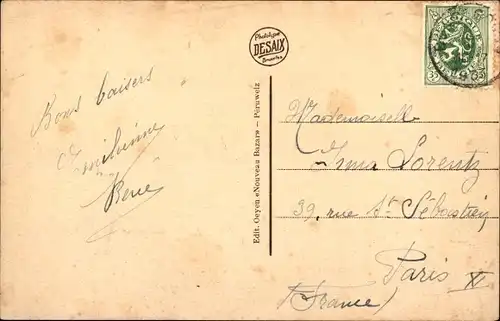 Bons baisers
Emilienne
Phototypie
DESAIX
Bruxelles
Edit. Oeyen «Nouveau Bazar» – Péruwelz
35
Mademoiselle
Irma Lorentz
39, rue St Sébastien
Paris XI
(France)